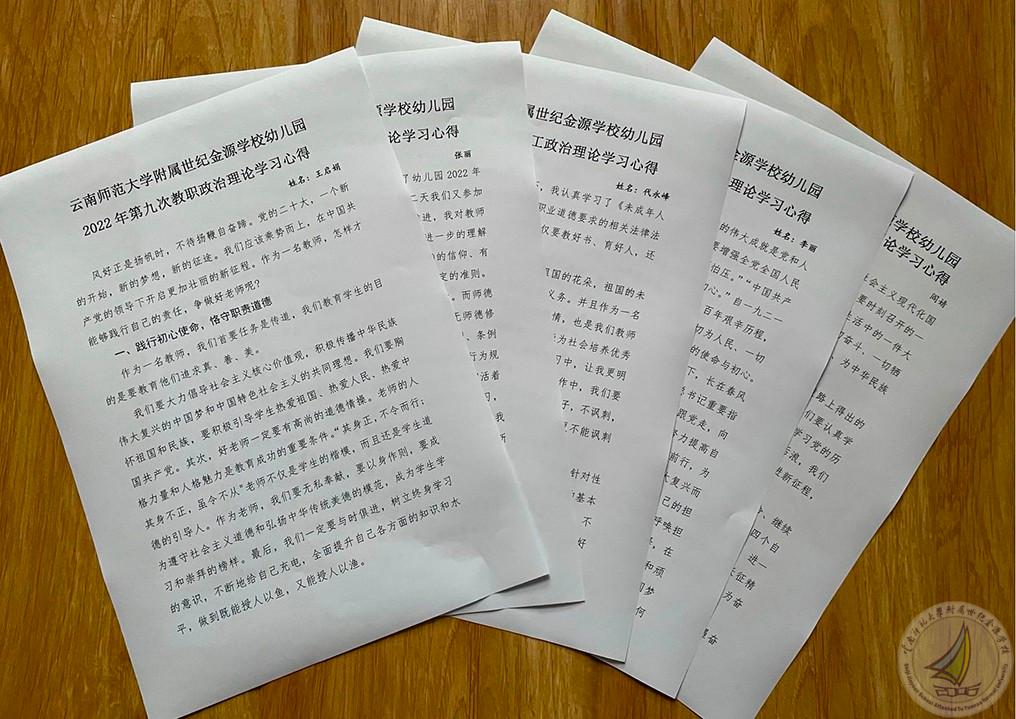 云南师范大学附属世纪金源学校幼儿园
2022年第九次教职政治理论学习心得
姓名：王启娟
风好正是扬帆时，不待扬鞭自奋蹄。党的二十大，一个新
的开始，新的梦想，新的征途。我们应该乘势而上，在中国共
产党的领导下开启更加壮丽的新征程。作为一名教师，怎样才
能够践行自己的责任，争做好老师呢？
一、践行初心使命，恪守职责道德
作为一名教师，我们首要任务是传道，我们教育学生的目
的是要教育他们追求真、善、美。
我们要大力倡导社会主义核心价值观，积极传播中华民族
伟大复兴的中国梦和中国特色社会主义的共同理想。我们要胸
怀祖国和民族，要积极引导学生热爱祖国、热爱人民、热爱中
国共产党。其次，好老师一定要有高尚的道德情操。老师的人
格力量和人格魅力是教育成功的重要条件。“其身正，不令而行；
其身不正，虽令不从”老师不仅是学生的楷模，而且还是学生道
德的引导人。作为老师，我们要无私奉献，要以身作则，要成
为遵守社会主义道德和弘扬中华传统美德的模范，成为学生学
习和崇拜的榜样。最后，我们一定要与时俱进，树立终身学习
的意识，不断地给自己充电，全面提升自己各方面的知识和水
平，做到既能授人以鱼，又能授人以渔。
学校幼儿园
论学习心得
张丽
了幼儿园2022年
二天我们又参加
进，我对教师
进一步的理解
的信仰、有
定的准则。
而师德
无师德修
、条例
行为规
活着
属世纪金源学校幼儿园
工政治理论学习心得
姓名：代永峰
，我认真学习了《未成年人
职业道德要求的相关法律法
仅要教好书、育好人，还
祖国的花朵，祖国的未
义务。并且作为一名
情，也是我们教师
为社会培养优秀
习中，让我更明
作中，我们要
子，不讽刺，
更不能讽刺
针对性
基本
不
好
金源学校幼儿园
理论学习心得
姓名：李丽
的伟大成就是党和人
要增强全党全国人民
怕压。”“中国共产
初心。”自一九二一
百年艰辛历程，
切为人民、一切
的使命与初心。
下，长在春风
书记重要指
跟党走，向
努力提高自
前行，为
大复兴而
己的担
呼唤担
，在
和顽
梦
何
学校幼儿园
学习心得
阎婧
社会主义现代化国
要时刻召开的一
生活中的一件大
奋斗、一切牺
为中华民族
路上得出的
们要认真学
学习党的历
后浪，我们
进新征程，
，继续
四个自
进一
长征精
为奋
奋
云南师范大學附屬世紀金源學校
Shiji Jinyuan School Attached To Yunnan Normal University